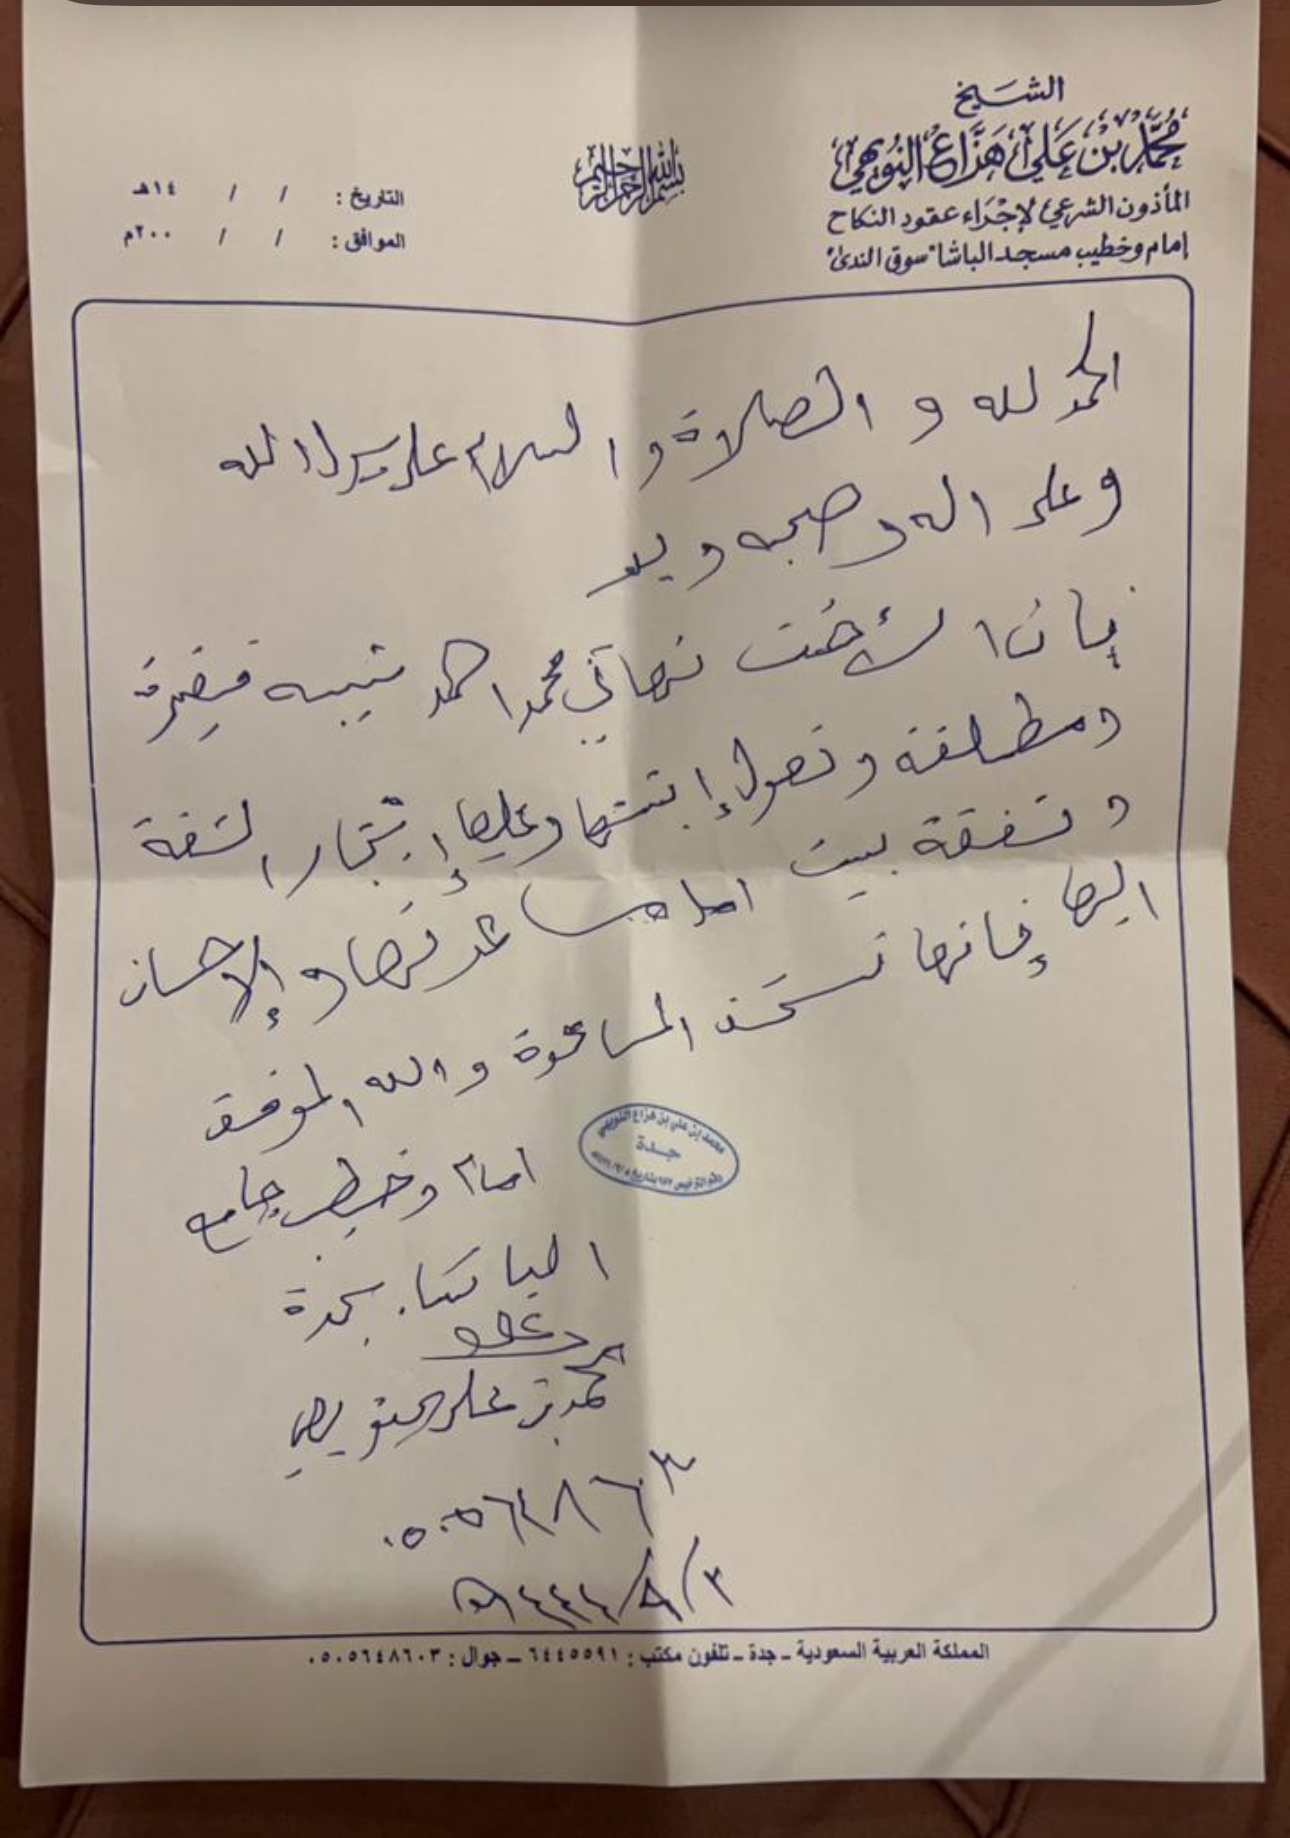 الشيخ
محمد بن علي هزاع النويهي
المأذون الشرعي لإجراء عقود النكاح
إمام وخطيب مسجد الباشا "سوق الندى"
بسم الله الرحمن الرحيم
التاريخ : / / ١٤هـ
الموافق : / / ٢٠٠م
الحمد لله و الصلاة و السلام على رسول الله
وعلى اله وصحبه وبعد
فإن الأخت تهاني محمد احمد شيبه فقيرة
ومطلقة وتعول إبنتها وعليها إيجار الشقة
ونفقة بيت امل مساعدتها والإحسان
اليها فإنها تستحق المساعدة والله الموفق
امام وخطيب جامع
الباشا بجدة
محمد بن علي النويهي
٠٥٠٥٦٤٨٦٠٣
١٤٤٤/٨/٢هـ
محمد بن علي بن هزاع النويهي
جدة
المملكة العربية السعودية ـ جدة ـ تلفون مكتب : ٦٤٤٥٥٩١ ـ جوال : ٠٥٠٥٦٤٨٦٠٣